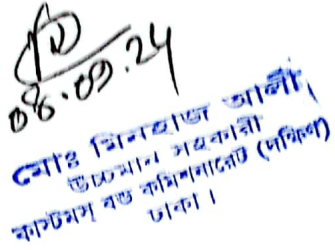 ০৪.০৩.২4
মোঃ মিনহাজ আলী
উচ্চমান সহকারী
কাস্টমস্ বন্ড কমিশনারেট (দক্ষিণ)
ঢাকা।